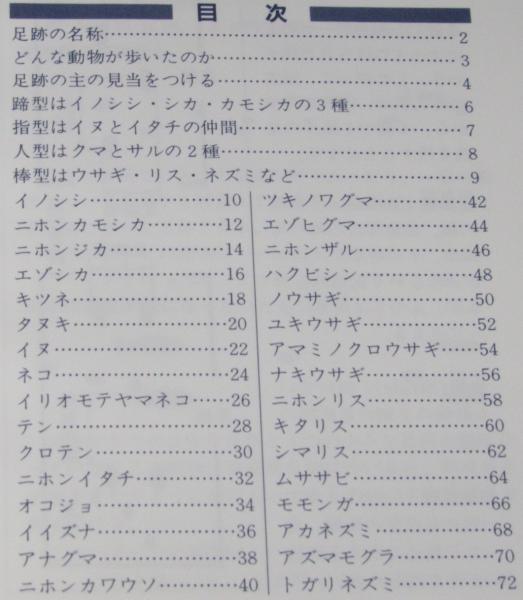 目次
足跡の名称……………………………………… 2
どんな動物が歩いたのか……………………… 3
足跡の主の見当をつける……………………… 4
蹄型はイノシシ・シカ・カモシカの3種………… 6
指型はイヌとイタチの仲間…………………… 7
人型はクマとサルの2種……………………… 8
棒型はウサギ・リス・ネズミなど……………… 9
イノシシ………………10
ニホンカモシカ………12
ニホンジカ……………14
エゾシカ………………16
キツネ…………………18
タヌキ…………………20
イヌ……………………22
ネコ……………………24
イリオモテヤマネコ……26
テン……………………28
クロテン………………30
ニホンイタチ…………32
オコジョ………………34
イイズナ………………36
アナグマ………………38
ニホンカワウソ………40
ツキノワグマ…………42
エゾヒグマ……………44
ニホンザル……………46
ハクビシン……………48
ノウサギ………………50
ユキウサギ……………52
アマミノクロウサギ……54
ナキウサギ……………56
ニホンリス……………58
キタリス………………60
シマリス………………62
ムササビ………………64
モモンガ………………66
アカネズミ……………68
アズマモグラ…………70
トガリネズミ…………72